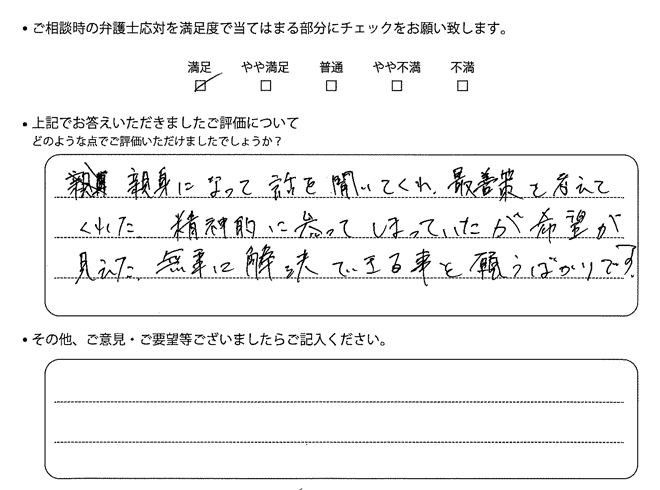 ・ご相談時の弁護士応対を満足度で当てはまる部分にチェックをお願い致します。
満足 やや満足 普通 やや不満 不満
・上記でお答えいただきましたご評価について
どのような点でご評価いただけましたでしょうか？
親身になって話を聞いてくれ、最善策を考えて
くれた 精神的に参ってしまっていたが希望が
見えた、無事に解決できる事を願うばかりです。
・その他、ご意見・ご要望等ございましたらご記入ください。